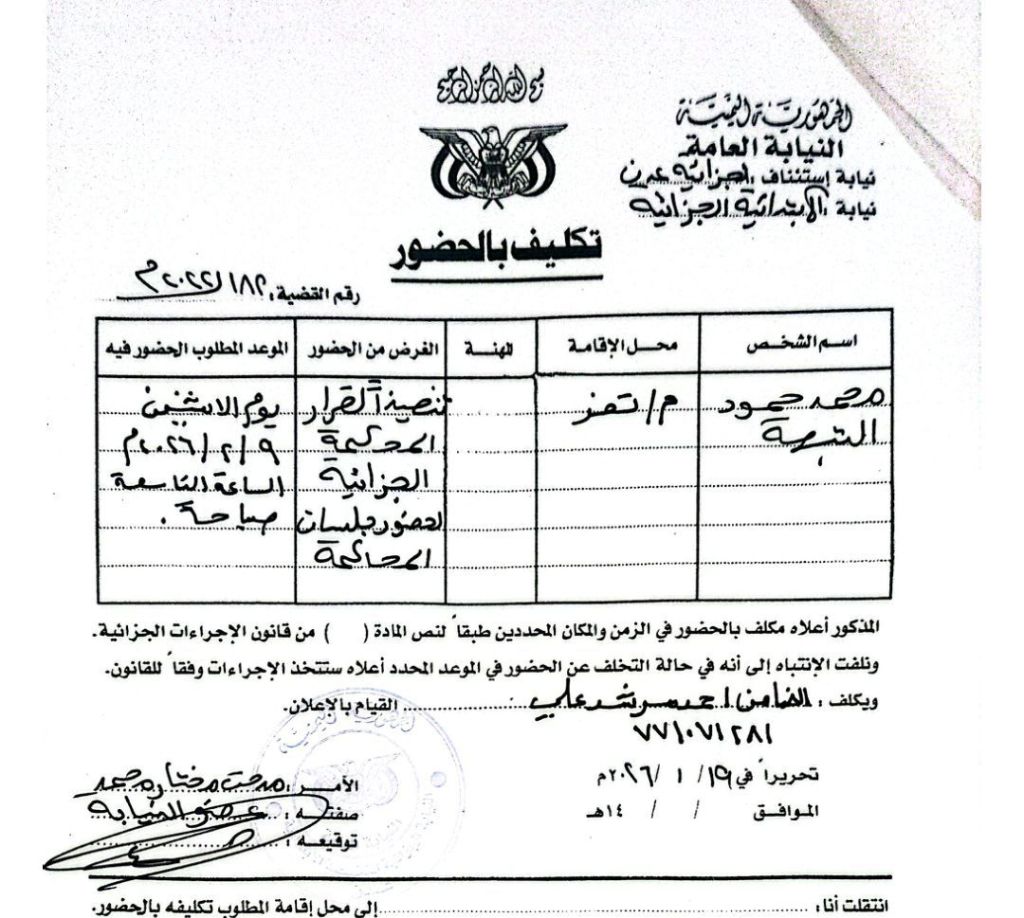 بسم الله الرحمن الرحيم
الجمهورية اليمنية
النيابة العامة
نيابة إستئناف: الجزائية عدن
نيابة: الابتدائية الجزائية
تكليف بالحضور
رقم القضية: ١٨٢/٢٠٢٢م
اسم الشخص | محل الإقامة | المهنة | الغرض من الحضور | الموعد المطلوب الحضور فيه
محمد حمود | م/تعز | تنفيذاً لقرار | يوم الاثنين
المحكمة | ٩/٢/٢٠٢٦م
الجزائية | الساعة التاسعة
لحضور جلسات | صباحاً.
المحاكمة
المذكور أعلاه مكلف بالحضور في الزمن والمكان المحددين طبقاً لنص المادة ( ) من قانون الإجراءات الجزائية.
ونلفت الإنتباه إلى أنه في حالة التخلف عن الحضور في الموعد المحدد أعلاه ستتخذ الإجراءات وفقاً للقانون.
ويكلف: الضامن/ احمد مرشد علي القيام بالإعلان.
٧٧١٠٧١٢٨١
تحريراً في ١٩/ ١ /٢٠٢٦م
الموافق / / ١٤هـ
الآمر: مدحت مختار محمد
صفته: عضو النيابة
توقيعه:
انتقلت أنا: إلى محل إقامة المطلوب تكليفه بالحضور.